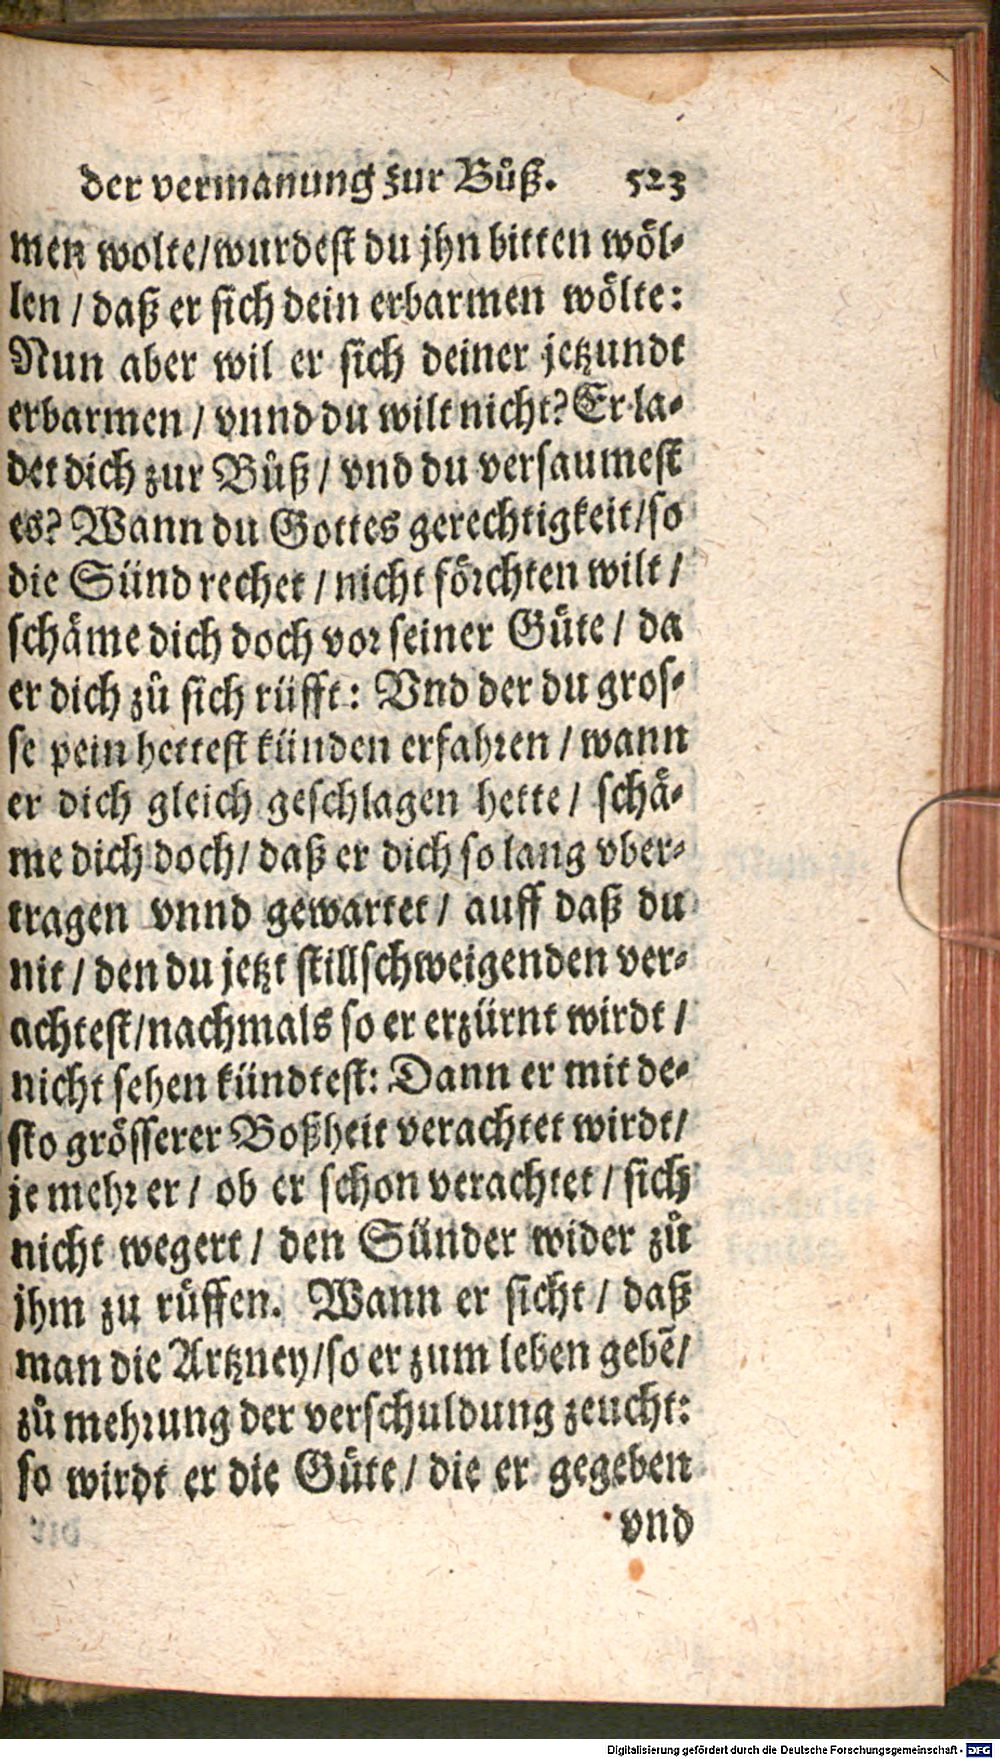 der vermanung zur Bůß. 523
men wolte/wurdest du jhn bitten wöl-
len / daß er sich dein erbarmen wölte:
Nun aber wil er sich deiner jetzundt
erbarmen / vnnd du wilt nicht? Er la-
det dich zur Bůß / vnd du versaumest
es? Wann du Gottes gerechtigkeit/so
die Sünd rechet / nicht förchten wilt /
schäme dich doch vor seiner Güte / da
er dich zů sich rüfft: Vnd der du gros-
se pein hettest künden erfahren / wann
er dich gleich geschlagen hette / schä-
me dich doch/ daß er dich so lang vber-
tragen vnnd gewartet / auff daß du
nit / den du jetzt stillschweigenden ver-
achtest/nachmals so er erzürnt wirdt /
nicht sehen kündtest: Dann er mit de-
sto grösserer Boßheit verachtet wirdt/
je mehr er / ob er schon verachtet / sich
nicht wegert / den Sünder wider zů
jhm zu rüffen. Wann er sicht / daß
man die Artzney/so er zum leben gebẽ/
zů mehrung der verschuldung zeucht:
so wirdt er die Güte / die er gegeben
vnd
Digitalisierung gefördert durch die Deutsche Forschungsgemeinschaft - DFG